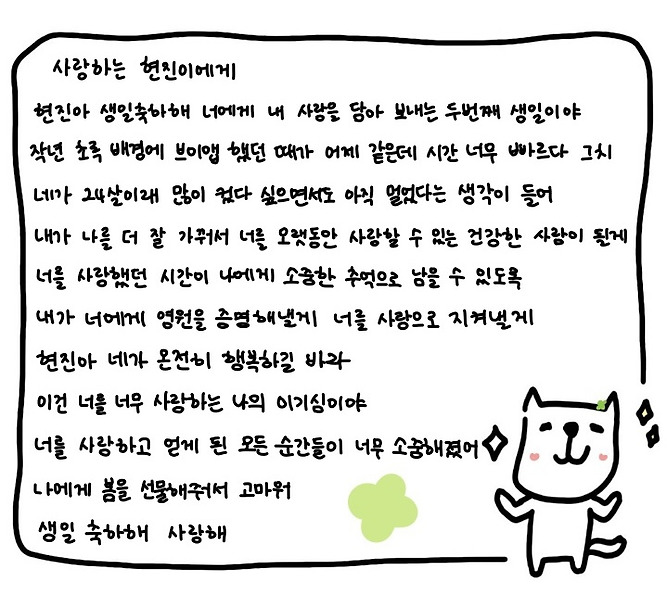 사랑하는 현진이에게
현진아 생일축하해 너에게 내 사랑을 담아 보내는 두번째 생일이야
작년 초록 배경에 브이앱 했던 때가 어제 같은데 시간 너무 빠르다 그치
네가 24살이래 많이 컸다 싶으면서도 아직 멀었다는 생각이 들어
내가 나를 더 잘 가꿔서 너를 오랫동안 사랑할 수 있는 건강한 사람이 될게
너를 사랑했던 시간이 나에게 소중한 추억으로 남을 수 있도록
내가 너에게 영원을 증명해낼게 너를 사랑으로 지켜낼게
현진아 네가 온전히 행복하길 바라
이건 너를 너무 사랑하는 나의 이기심이야
너를 사랑하고 얻게 된 모든 순간들이 너무 소중해졌어
나에게 봄을 선물해줘서 고마워
생일 축하해 사랑해